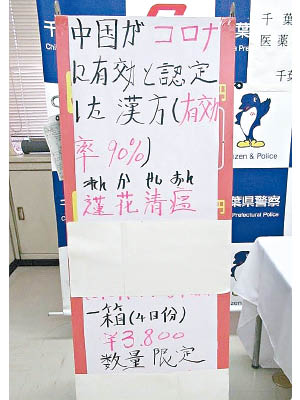 中国が コロナ
に有効と認定
した 漢方(有効
率 90%)
れん か せい おん
蓮花清瘟
一箱(4日份)
¥3.800
数量 限定
千
葉県
千葉
医薬
izen & Police
葉県警察
Prefectural Police